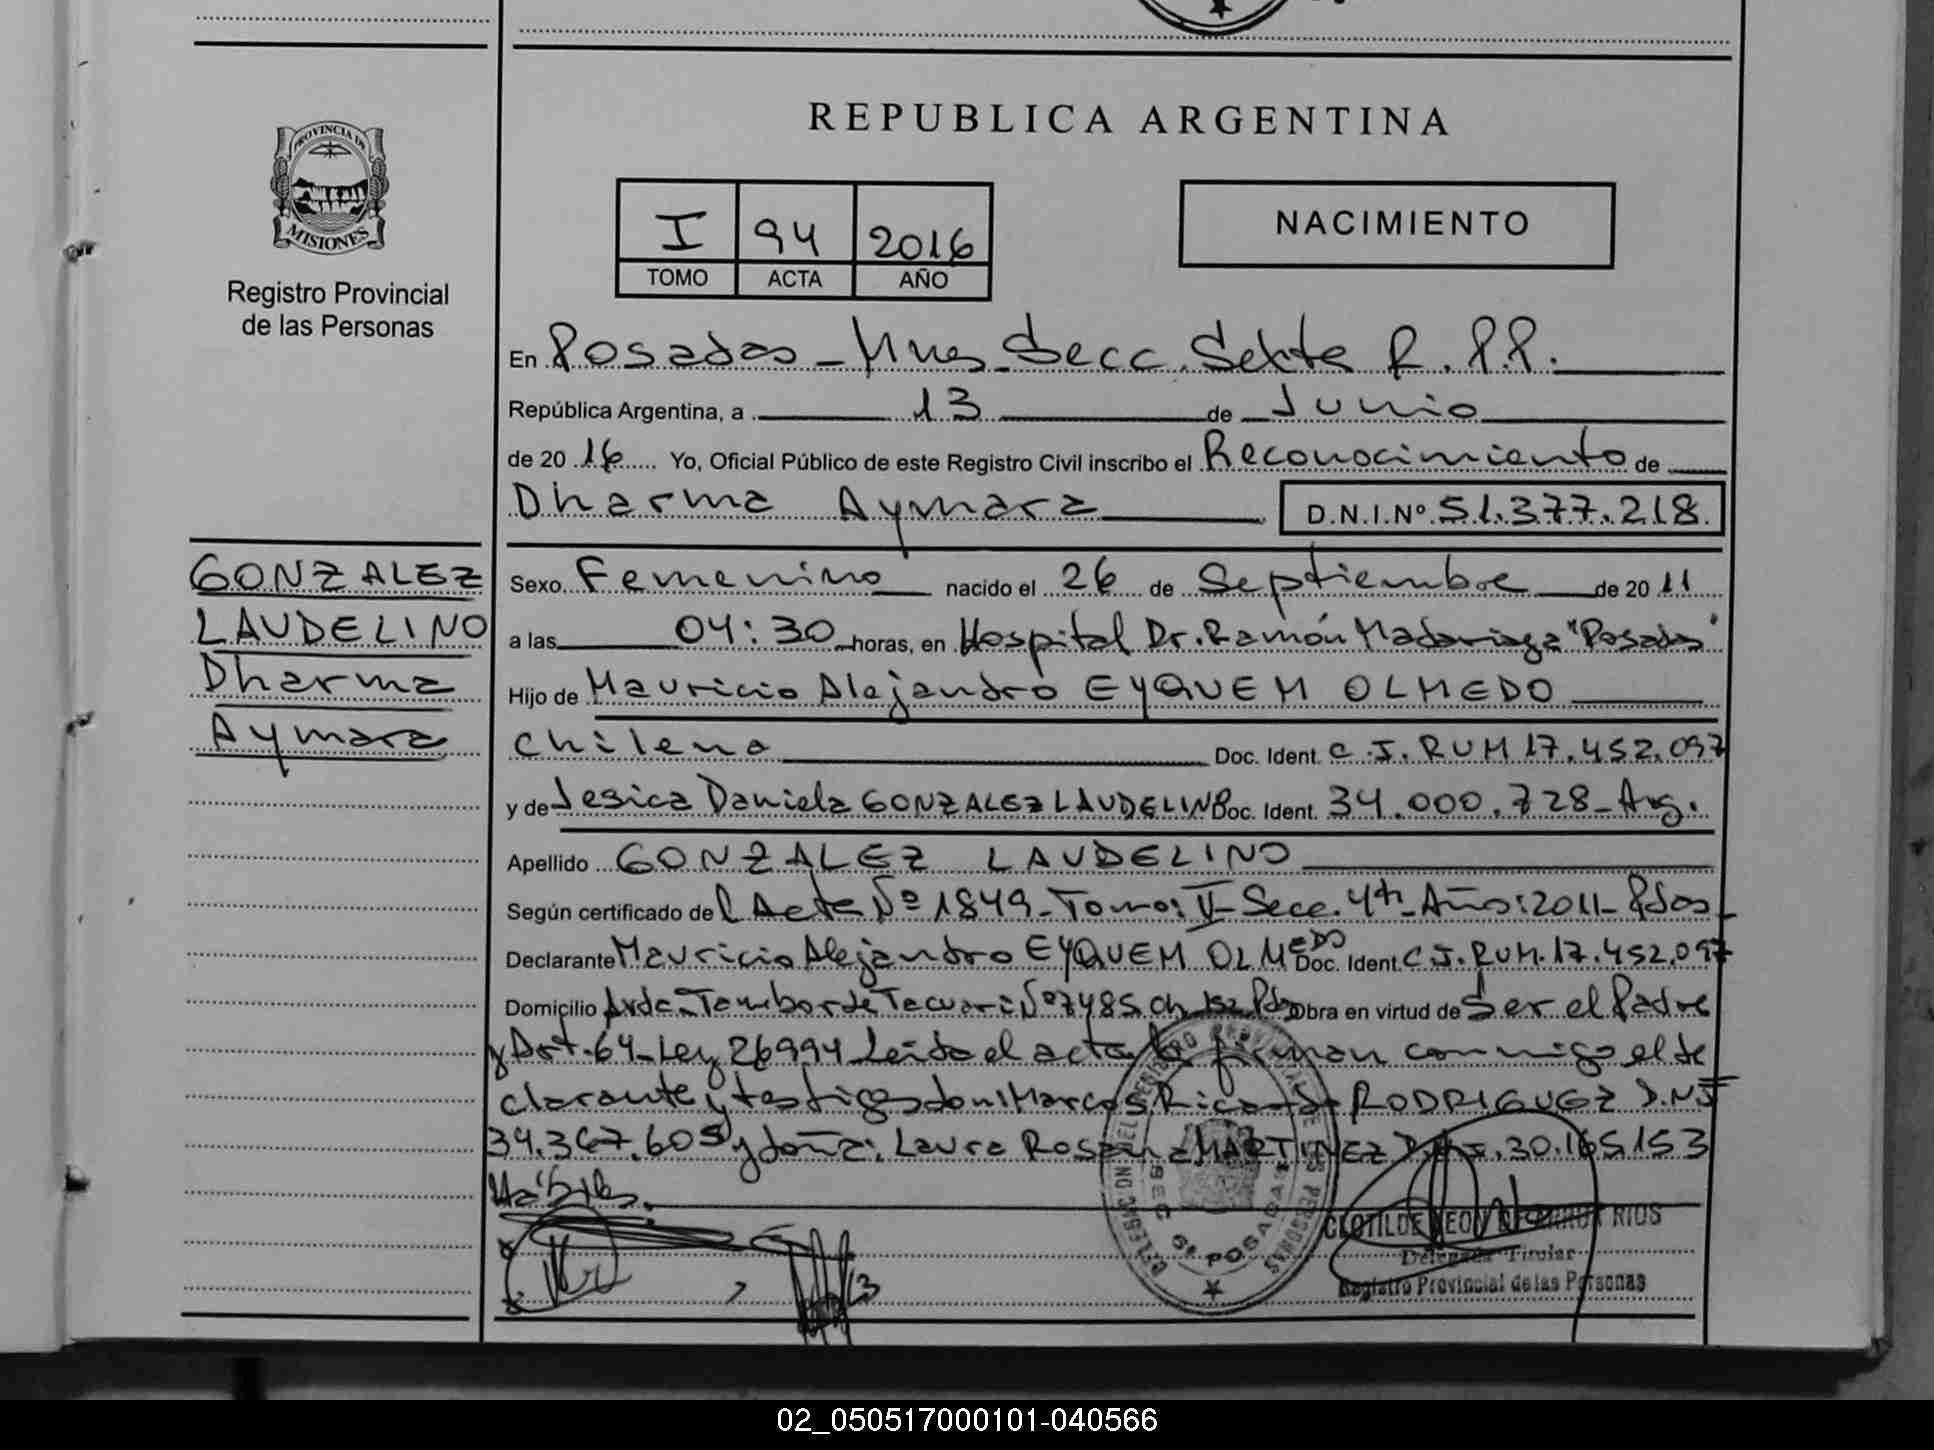 REPUBLICA ARGENTINA
PROVINCIA DE
MISIONES
Registro Provincial
de las Personas
I 94 2016
TOMO ACTA AÑO
NACIMIENTO
En Posadas - Mnes. Secc. Sexta R.P.P.
República Argentina, a 13 de Junio
de 20 16 Yo, Oficial Público de este Registro Civil inscribo el Reconocimiento de
Dharma Aymara D.N.I.Nº 51.377.218.
GONZALEZ
LAUDELINO
Dharma
Aymara
Sexo Femenino nacido el 26 de Septiembre de 20 11
a las 04:30 horas, en Hospital Dr. Ramón Madariaga "Posadas"
Hijo de Mauricio Alejandro EYQUEM OLMEDO
Chilena Doc. Ident. C.I. RUM 17.452.097
y de Jesica Daniela GONZALEZ LAUDELINO Doc. Ident. 34.000.728 - Arg.
Apellido GONZALEZ LAUDELINO
Según certificado del Acta Nº 1849 - Tomo: V - Secc. 4th - Año: 2011 - Pdas
Declarante Mauricio Alejandro EYQUEM OLMEDO Doc. Ident. C.I. RUM. 17.452.097
Domicilio Avda. Tambor de Tacuari Nº 7485 ch 152 Pdas Obra en virtud de Ser el Padre
y Art. 64 - Ley 26994 Leida el acta la firman conmigo el de
clarante y testigos don: Marcos Ricardo RODRIGUEZ D.N.I
34.367.605 y doña: Laura Rosana MARTINEZ D.N.I. 30.165153
Hábiles.
DELEGACION DEL REGISTRO PROVINCIAL DE LAS PERSONAS
SECC 6ª POSADAS
CLOTILDE RIOS
Delegada Titular
Registro Provincial de las Personas
02_050517000101-040566